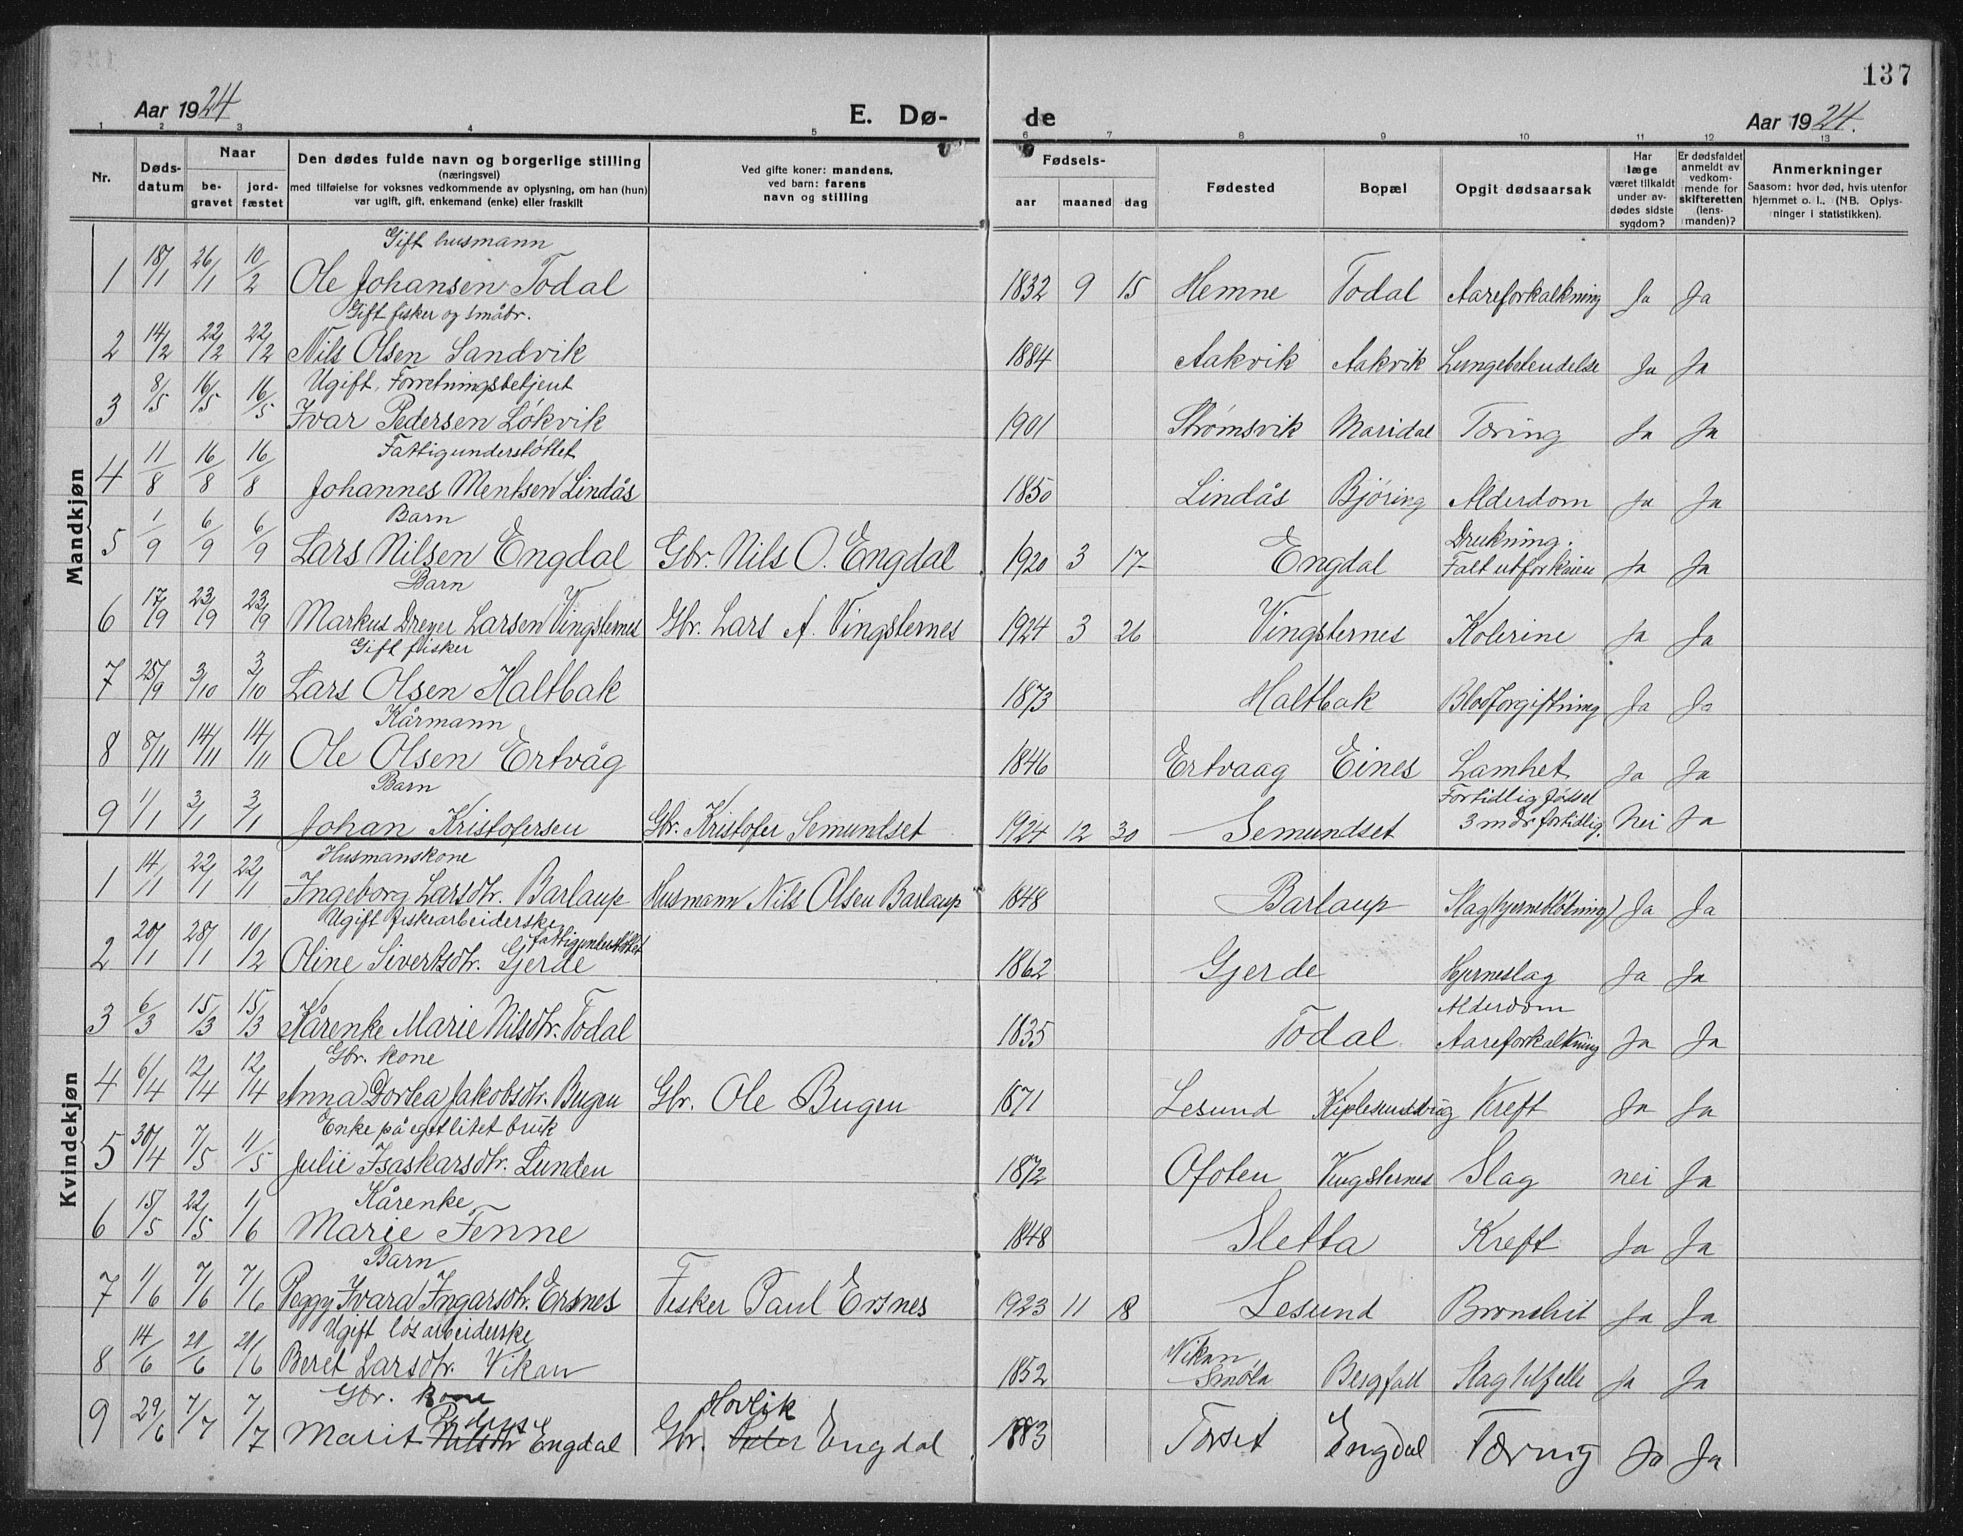 137
Aar 1924 E. Dø- de Aar 1924.
1 2 3 4 5 6 7 8 9 10 11 12 13
Nr. Døds-datum Naar be-gravet jord-fæstet Den dødes fulde navn og borgerlige stilling (næringsvei) med tilføielse for voksnes vedkommende av oplysning, om han (hun) var ugift, gift, enkemand (enke) eller fraskilt Ved gifte koner: mandens, ved barn: farens navn og stilling Fødsels- aar maaned dag Fødested Bopæl Opgit dødsaarsak Har læge været tilkaldt under av-dødes sidste sygdom? Er dødsfaldet anmeldt av vedkom-mende for skifteretten (lens-manden)? Anmerkninger Saasom: hvor død, hvis utenfor hjemmet o. l.. (NB. Oplys-ninger i statistikken).
Mandkjøn
Gift husmann
1 18/1 26/1 10/2 Ole Johansen Todal 1832 9 15 Hemne Todal Aareforkalkning Ja Ja
Gift fisker og småbr.
2 14/2 22/2 22/2 Nils Olsen Sandvik 1884 Aakvik Aakvik Lungebetendelse Ja Ja
Ugift. Forretningsbetjent
3 8/5 16/5 16/5 Ivar Pedersen Lökvik 1901 Strømsvik Maridal Tæring Ja Ja
Fattigunderstöttet
4 11/8 16/8 16/8 Johannes Mentsen Lindås 1850 Lindås Björing Alderdom Ja Ja
Barn
5 1/9 6/9 6/9 Lars Nilsen Engdal Gbr. Nils O. Engdal 1920 3 17 Engdal Drukning. Falt utfor kaien Ja Ja
Barn
6 17/9 23/9 23/9 Markus Dreyer Larsen Vingsternes Gbr. Lars A. Vingsternes 1924 3 26 Vingsternes Kolerine Ja Ja
Gift fisker
7 25/9 3/10 3/10 Lars Olsen Haltbak 1873 Haltbak Blodforgiftning Ja Ja
Kårmann
8 8/11 14/11 14/11 Ole Olsen Ertvåg 1846 Ertvaag Eines Lamhet Ja Ja
Barn
9 1/1 3/1 3/1 Johan Kristofersen Gbr. Kristofer Semundset 1924 12 30 Semundset Fortidlig födsel 3 mdr fortidlig. Nei Ja
Kvindekjøn
Husmanskone
1 14/11 22/1 22/1 Ingeborg Larsdtr. Barlaup Husmann Nils Olsen Barlaup 1848 Barlaup Slag (hjerneblötning) Ja Ja
Ugift fiskearbeiderske fattigunderstöttet
2 20/1 28/1 10/2 Oline Sivertsdtr. Gjerde 1862 Gjerde Hjerneslag Ja Ja
3 6/3 15/3 15/3 Kårenke Marie Nilsdtr. Todal 1835 Todal Alderdom Aareforkalkning Ja Ja
Gbr. kone
4 6/4 12/4 12/4 Anna Dortea Jakobsdtr. Bugen Gbr. Ole Bugen 1871 Lesund Kiplesundvåg Kreft Ja Ja
Enke på eget litet bruk
5 30/4 7/5 11/5 Julie Isaskarsdtr. Lunden 1872 Ofoten Vingsternes Slag nei Ja
Kårenke
6 15/5 22/5 1/6 Marie Fenne 1848 Sletta Kreft Ja Ja
Barn
7 1/6 7/6 7/6 Peggy Ivara Ingarsdtr. Ersnes Fisker Paul Ersnes 1923 11 18 Lesund Bronchit Ja Ja
Ugift lösarbeiderske
8 14/6 21/6 21/6 Beret Larsdtr. Vikan 1852 Vikan Smöla Bergfall Slagtilfelle Ja Ja
Gbr. kone
9 29/6 7/7 7/7 Marit Nilsdtr Engdal Gbr. Hovlik Engdal 1883 Torset Engdal Tæring Ja Ja